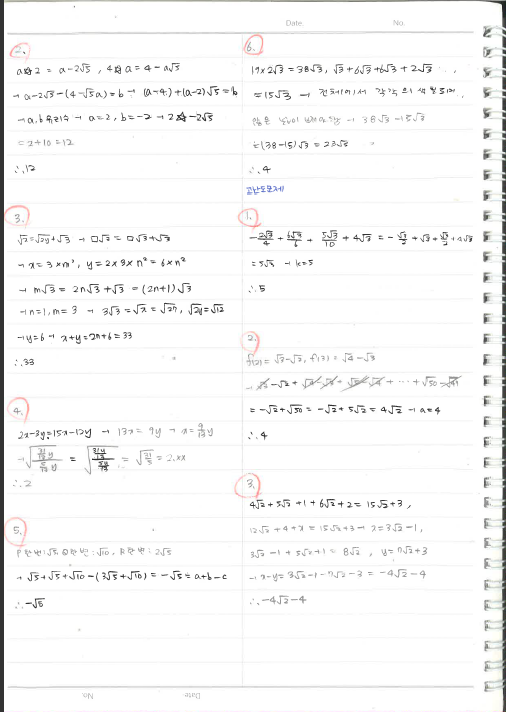 Date. No.
2.
a☆2 = a-2√5 , 4☆a = 4-a√5
→ a-2√5-(4-√5a) = b → (a-4)+(a-2)√5 = b
→ a.b 유리수 → a=2, b=-2 → 2☆-2√5
= x+10 = 12
∴ 12
3.
√x = √2y + √3 → □√3 = □√3+√3
→ x = 3×m², y = 2×3×n² = 6×n²
→ m√3 = 2n√3 + √3 = (2n+1)√3
→ n=1, m=3 → 3√3 = √x = √27, √2y = √12
→ y=6 → x+y = 27+6 = 33
∴ 33
4.
2x-3y = 15x-12y → 13x = 9y → x = 9/13 y
= √(21/5) = 2.xx
∴ 2
5.
→ √5+√5+√10-(3√5+√10) = -√5 = a+b-c
∴ -√5
6.
19×2√3 = 38√3, √3+6√3+6√3+2√3
= 15√3 → 전체에서 각각의
→ 38√3-15√3
(38-15)√3 = 23√3
∴ 4
고난도문제
1.
-2√3/4 + 6√3/6 + 5√3/10 + 4√3 = -√3/2 + √3 + √3/2 + 4√3
= 5√3 → k=5
∴ 5
2.
f(2) = √3-√2, f(3) = √4-√3
= -√2+√50 = -√2+5√2 = 4√2 → a=4
∴ 4
3.
4√2+5√2+1+6√2+2 = 15√2+3,
12√2+4+x = 15√2+3 → x = 3√2-1,
3√2-1+5√2+1 = 8√2 , y = 7√2+3
→ x-y = 3√2-1-7√2-3 = -4√2-4
∴ -4√2-4
Date No.